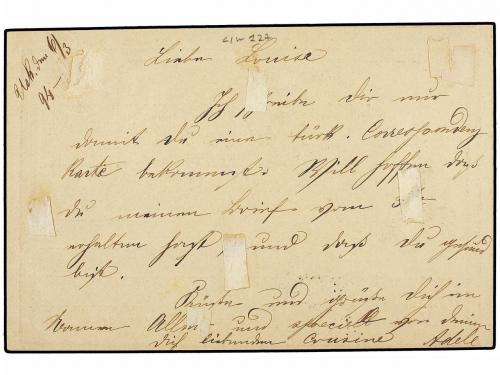 94 -
Liebe Louise
Ich schreibe Dir nur
damit du eine türk. Correspondenz
Karte bekommst. Will hoffen daß
du meinen Brief vom
erhalten hast, und daß du gesund
bist.
und grüße Dich im
Namen Aller und speciell von deiner
Dich liebenden Cousine Adele